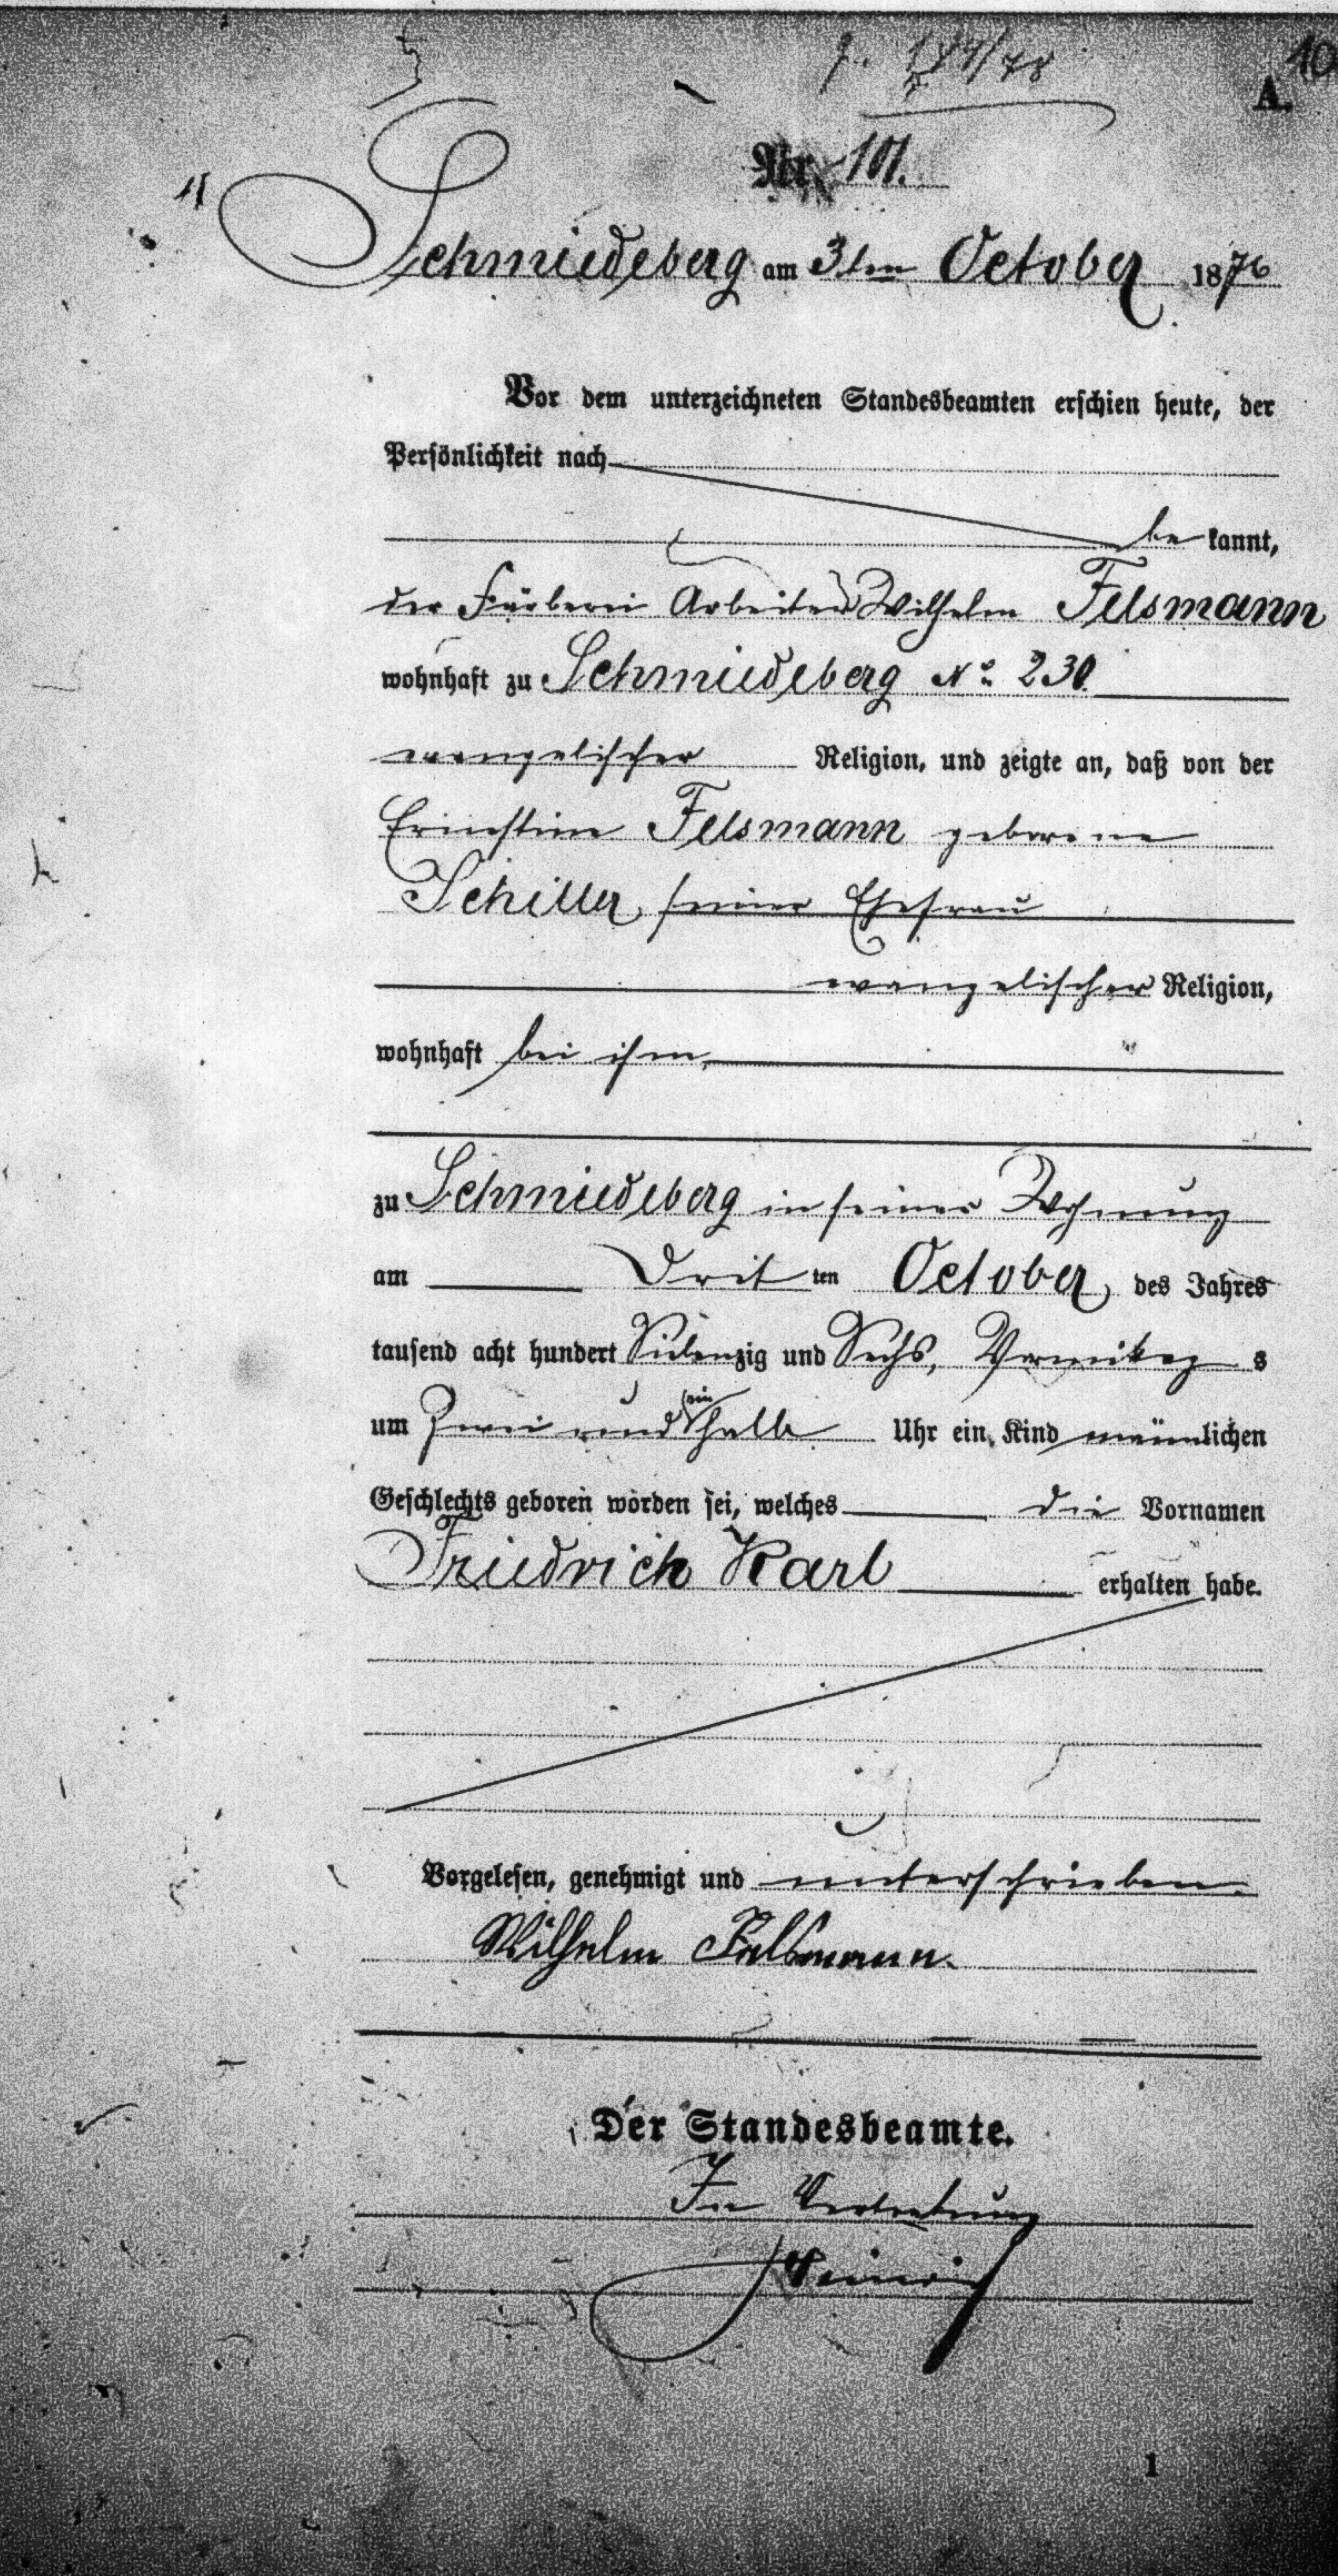 10
A.
Nr. 101.
Schmiedeberg am 3ten October 1876
Vor dem unterzeichneten Standesbeamten erschien heute, der
Persönlichkeit nach
be kannt,
der Färberei Arbeiter Wilhelm Felsmann
wohnhaft zu Schmiedeberg No 230.
evangelischer Religion, und zeigte an, daß von der
Ernestine Felsmann geborene
Schiller, seiner Ehefrau
evangelischer Religion,
wohnhaft bei ihm,
zu Schmiedeberg in seiner Wohnung
am Drit ten October des Jahres
tausend acht hundert Siebenzig und Sechs, Vormittag s
um Zwei und ein halb Uhr ein Kind männlichen
Geschlechts geboren worden sei, welches die Vornamen
Friedrich Karl erhalten habe.
Vorgelesen, genehmigt und unterschrieben.
Wilhelm Felsmann.
Der Standesbeamte.
In Vertretung
1